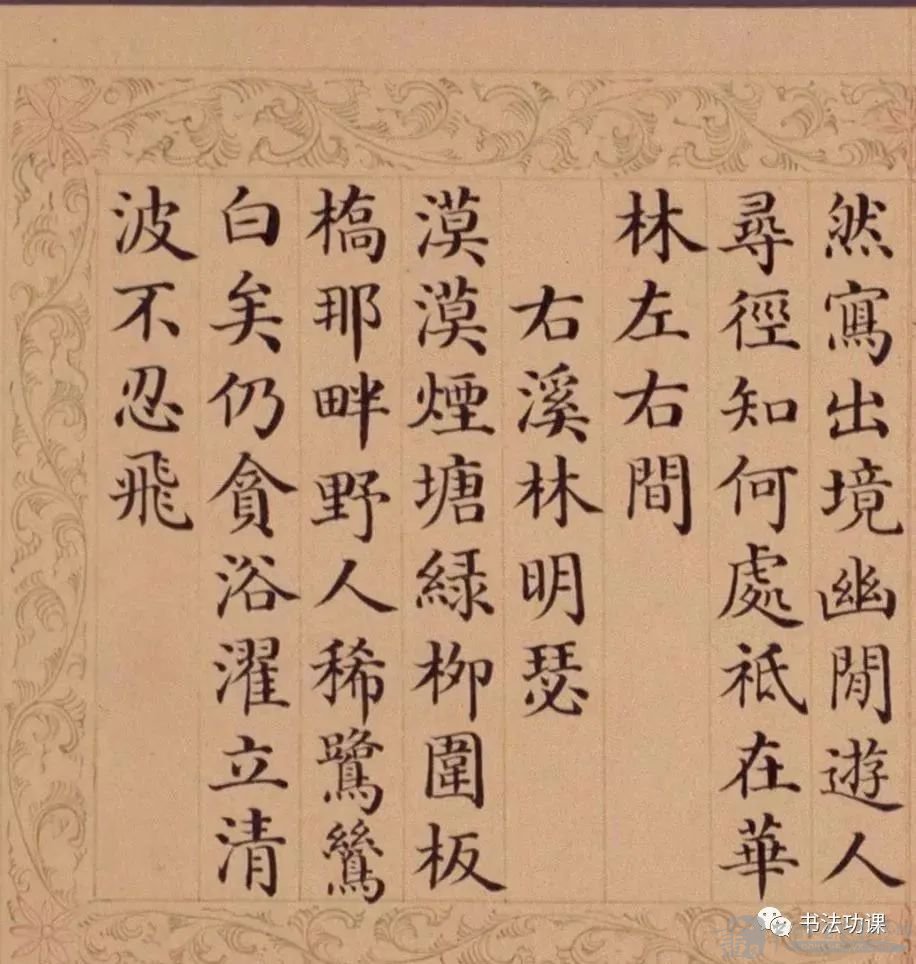 然寫出境幽閒遊人
尋徑知何處祗在華
林左右間
右溪林明瑟
漠漠煙塘綠柳圍板
橋那畔野人稀鷺鷥
白矣仍貪浴濯立清
波不忍飛
书法功课